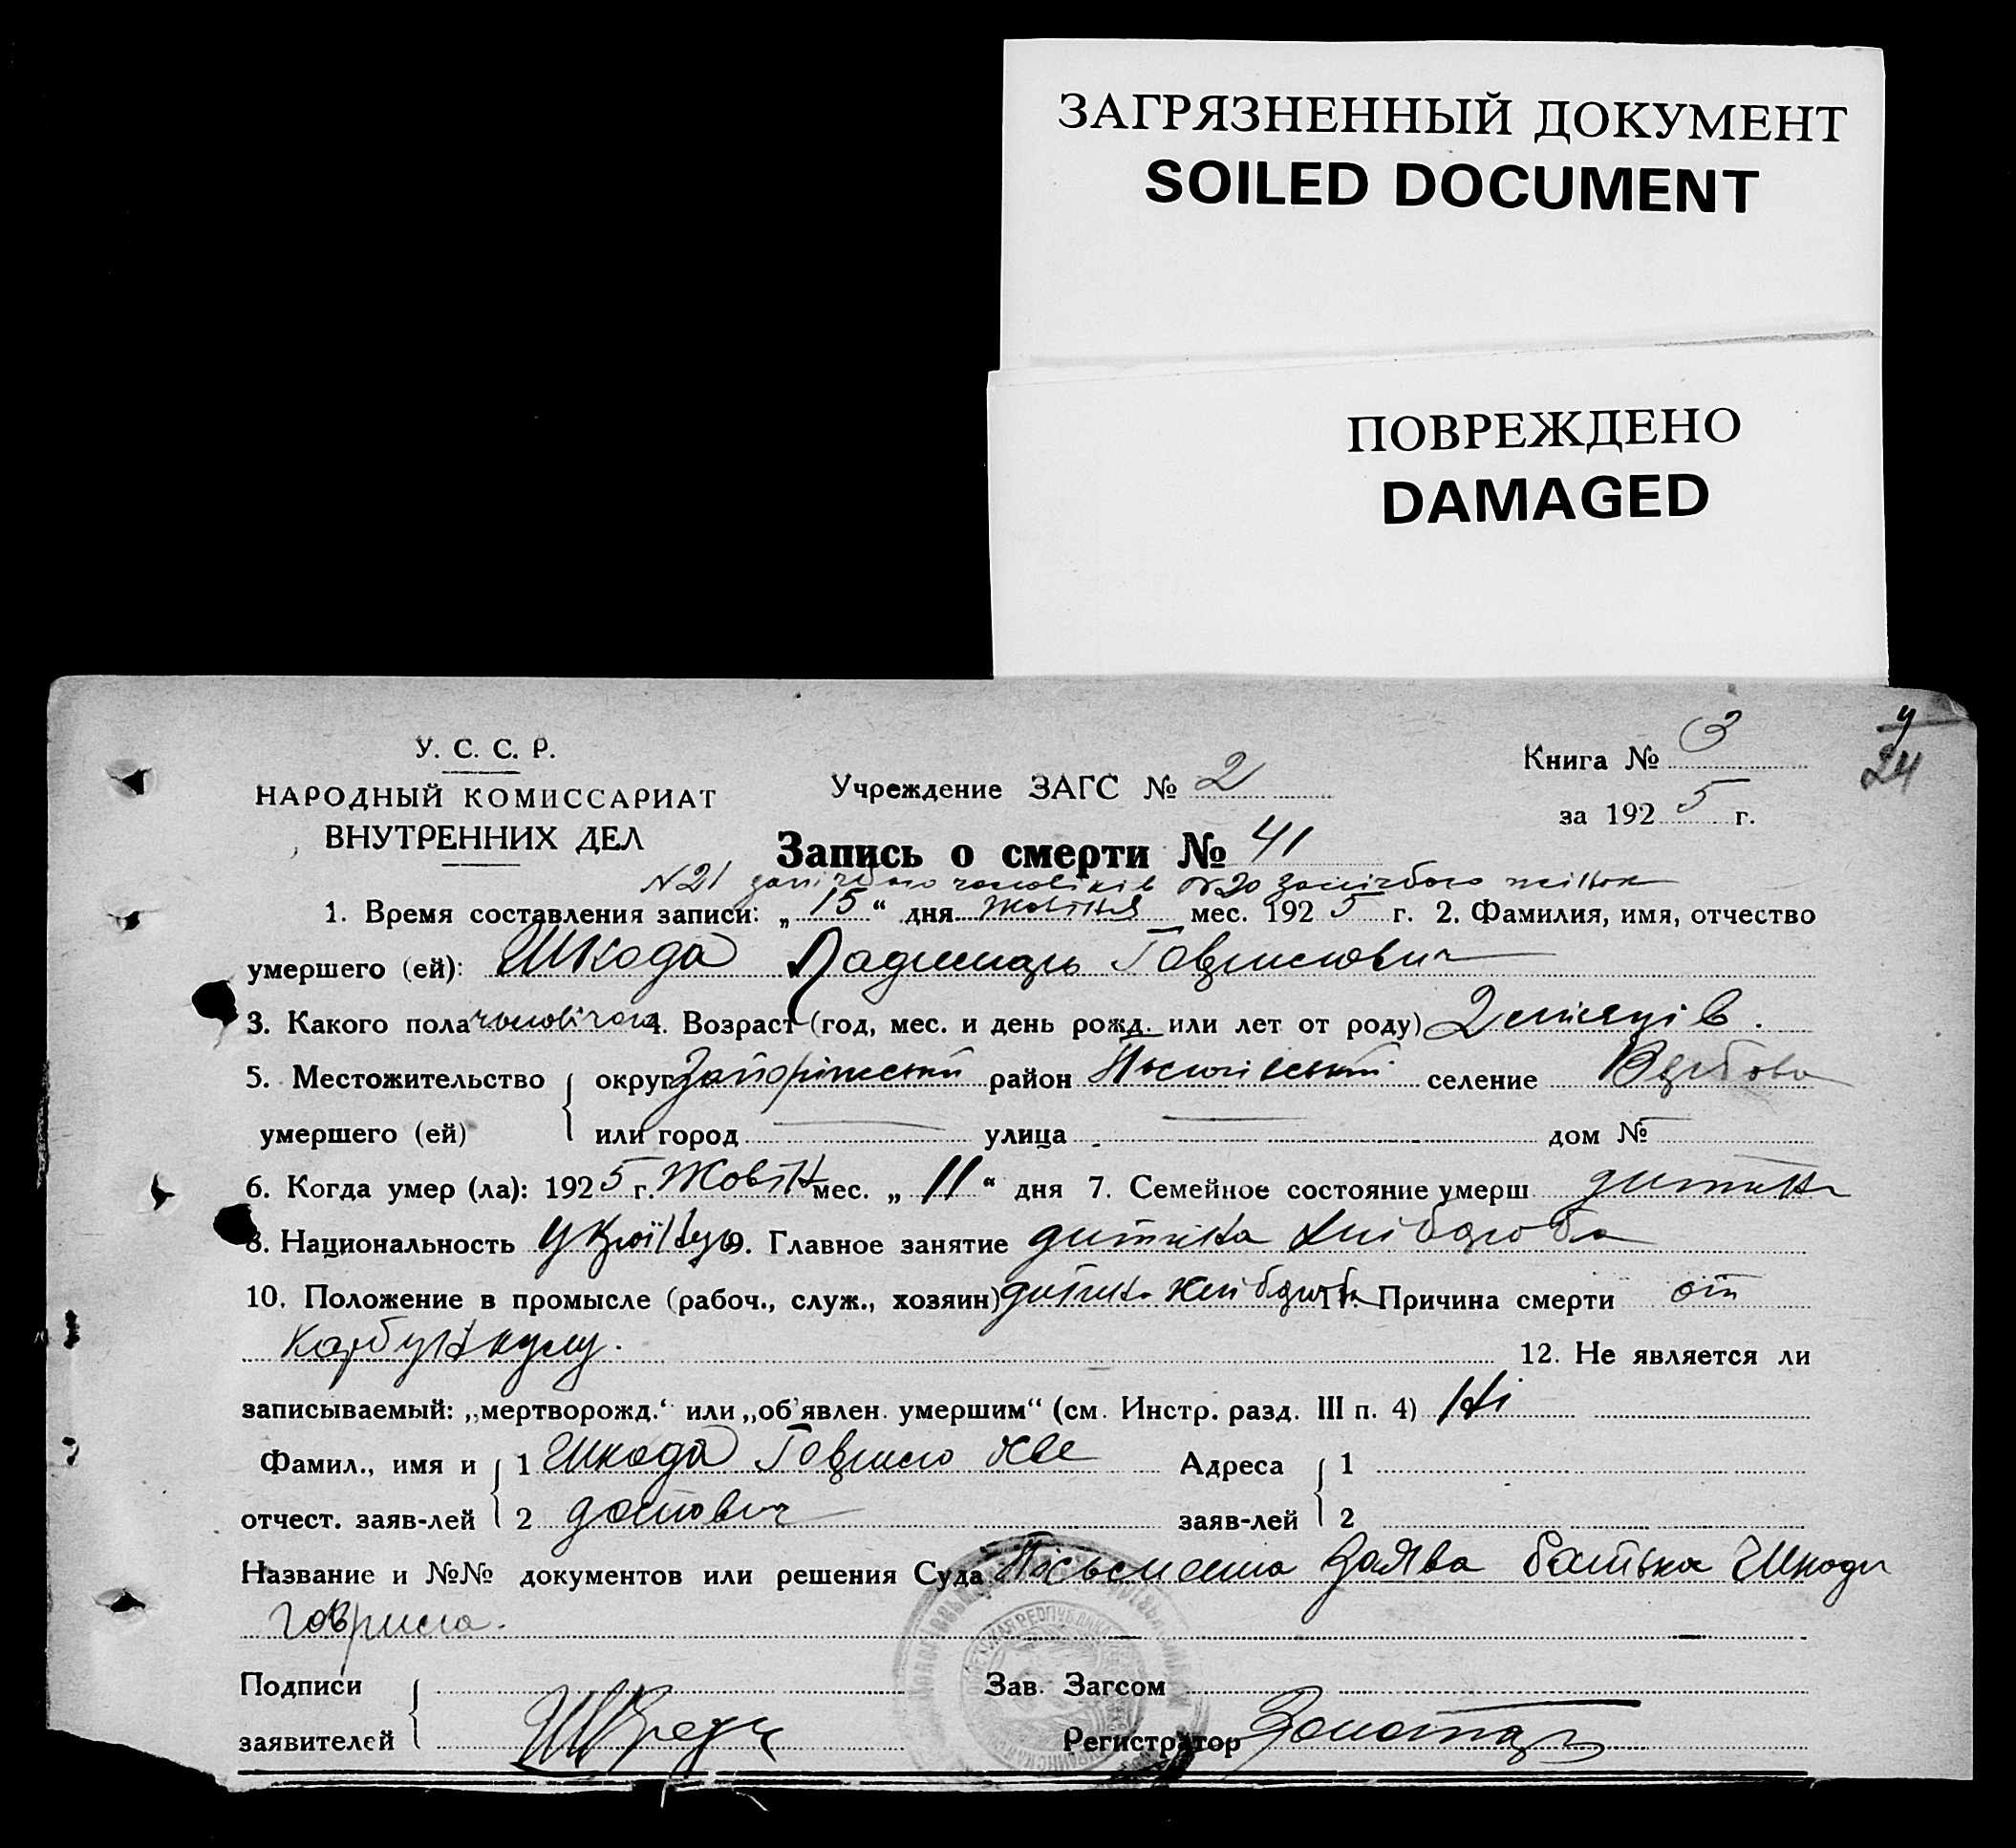 ЗАГРЯЗНЕННЫЙ ДОКУМЕНТ
SOILED DOCUMENT
ПОВРЕЖДЕНО
DAMAGED
У. С. С. Р.
НАРОДНЫЙ КОМИССАРИАТ
ВНУТРЕННИХ ДЕЛ
Учреждение ЗАГС № 2
Книга № 3
за 1925 г.
24
Запись о смерти № 41
N21 чоловіків N20 жінок
1. Время составления записи: „15“ дня Жовтня мес. 1925 г. 2. Фамилия, имя, отчество
умершего (ей): Шкода Гаврилович
3. Какого пола чоловічого 4. Возраст (год, мес. и день рожд. или лет от роду) 2 місяці в.
5. Местожительство округ Запоріжський район селение Вербова
умершего (ей) или город улица дом №
6. Когда умер (ла): 1925 г. Жовтн мес. „11“ дня 7. Семейное состояние умерш дитина
8. Национальность Україн 9. Главное занятие дитина хлібороба
10. Положение в промысле (рабоч., служ., хозяин) дитина хлібороба 11. Причина смерти от
карбункулу. 12. Не является ли
записываемый: „мертворожд.‘ или „об’явлен. умершим“ (см. Инстр. разд. III п. 4) Ні
Фамил., имя и 1 Шкода Гаврило Хве Адреса 1
отчест. заяв-лей 2 дотович заяв-лей 2
Название и №№ документов или решения Суда Письменна заява батька Шкоди
Гаврила.
Подписи Зав. Загсом
заявителей Регистратор